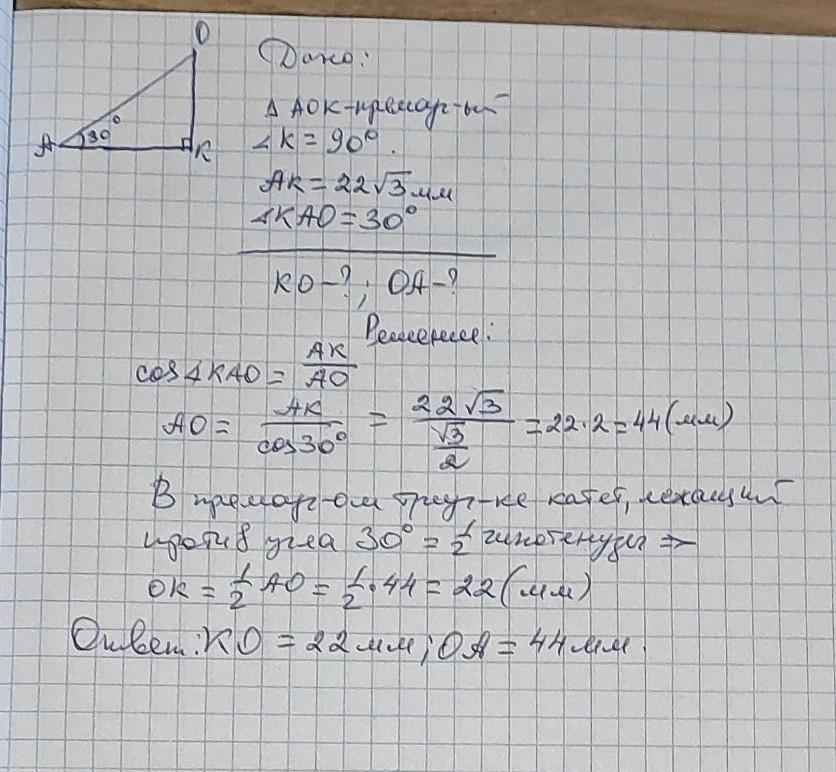 O
A 30° K
Дано:
Δ AOK-прямоуг-ый
∠K = 90°.
AK = 22√3 мм
∠KAO = 30°
KO-?; OA-?
Решение:
cos∠KAO = AK/AO
AO = AK/cos30° = 22√3/(√3/2) = 22·2 = 44 (мм)
В прямоуг-ом треуг-ке катет, лежащий
против угла 30° = 1/2 гипотенузы ⇒
OK = 1/2 AO = 1/2 · 44 = 22 (мм)
Ответ: KO = 22 мм; OA = 44 мм.